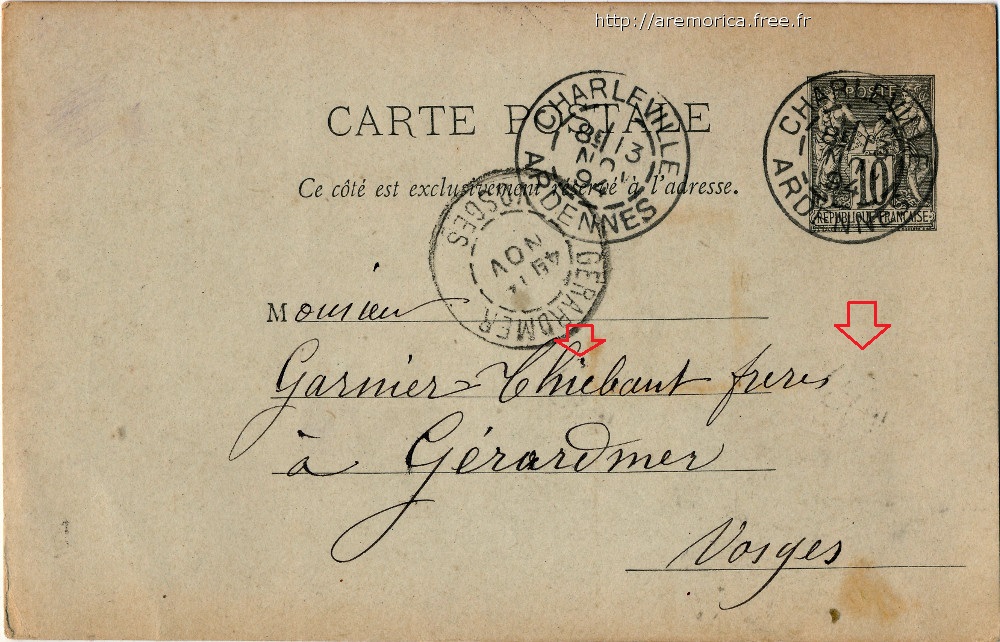 http://aremorica.free.fr
CARTE POSTALE
Ce côté est exclusivement réservé à l'adresse.
POSTES
10
REPUBLIQUE FRANCAISE
CHARLEVILLE
13
NOV
94
ARDENNES
CHARLEVILLE
13
NOV
94
ARDENNES
GERARDMER
VOSGES
NOV
94
Monsieur
Garnier=Thiébaut freres
à Gérardmer
Vosges